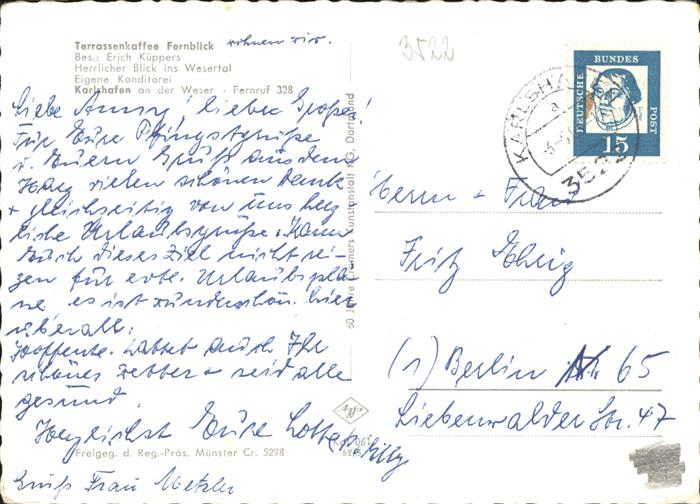 Terrassenkaffee Fernblick wohnen wir.
Bes.: Erich Küppers
Herrlicher Blick ins Wesertal
Eigene Konditorei
Karlshafen an der Weser - Fernruf 328
Liebe Anny, lieber Großer!
Für Eure Pfingstgrüße
u. Euern Gruß aus dem
Harz vielen schönen Dank
+ gleichzeitig von uns herz
liche Urlaubsgrüße. Kann
Euch dieses Ziel nicht rei-
zen für evtl. Urlaubsplä-
ne es ist wunderschön hier
überall.
Hoffentl. hattet auch Ihr
schönes Wetter + seid alle
gesund.
Herzlichst Eure Lotte + Willy
Freigeg. d. Reg.-Präs. Münster Cr. 5298
Gruß Frau Metzler
60 Jahre Cramers Kunstanstalt KG, Dortmund
3522
DEUTSCHE BUNDES POST
15
KARLSHAFEN
a
3522
Herrn + Frau
Fritz
(1) Berlin 65
Liebenwalder Str. 47